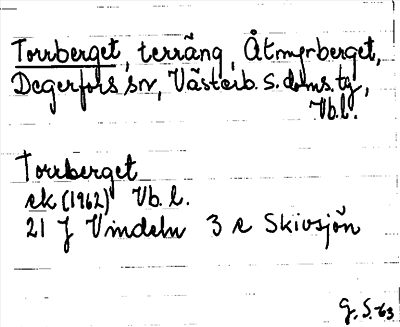 Torrberget, terräng, Åtmyrberget,
Degerfors sn, Västerb. s. doms. tg,
Vb. l.
Torrberget
ek (1962) Vb. l.
21 J Vindeln 3 e Skivsjön
G. S. 63